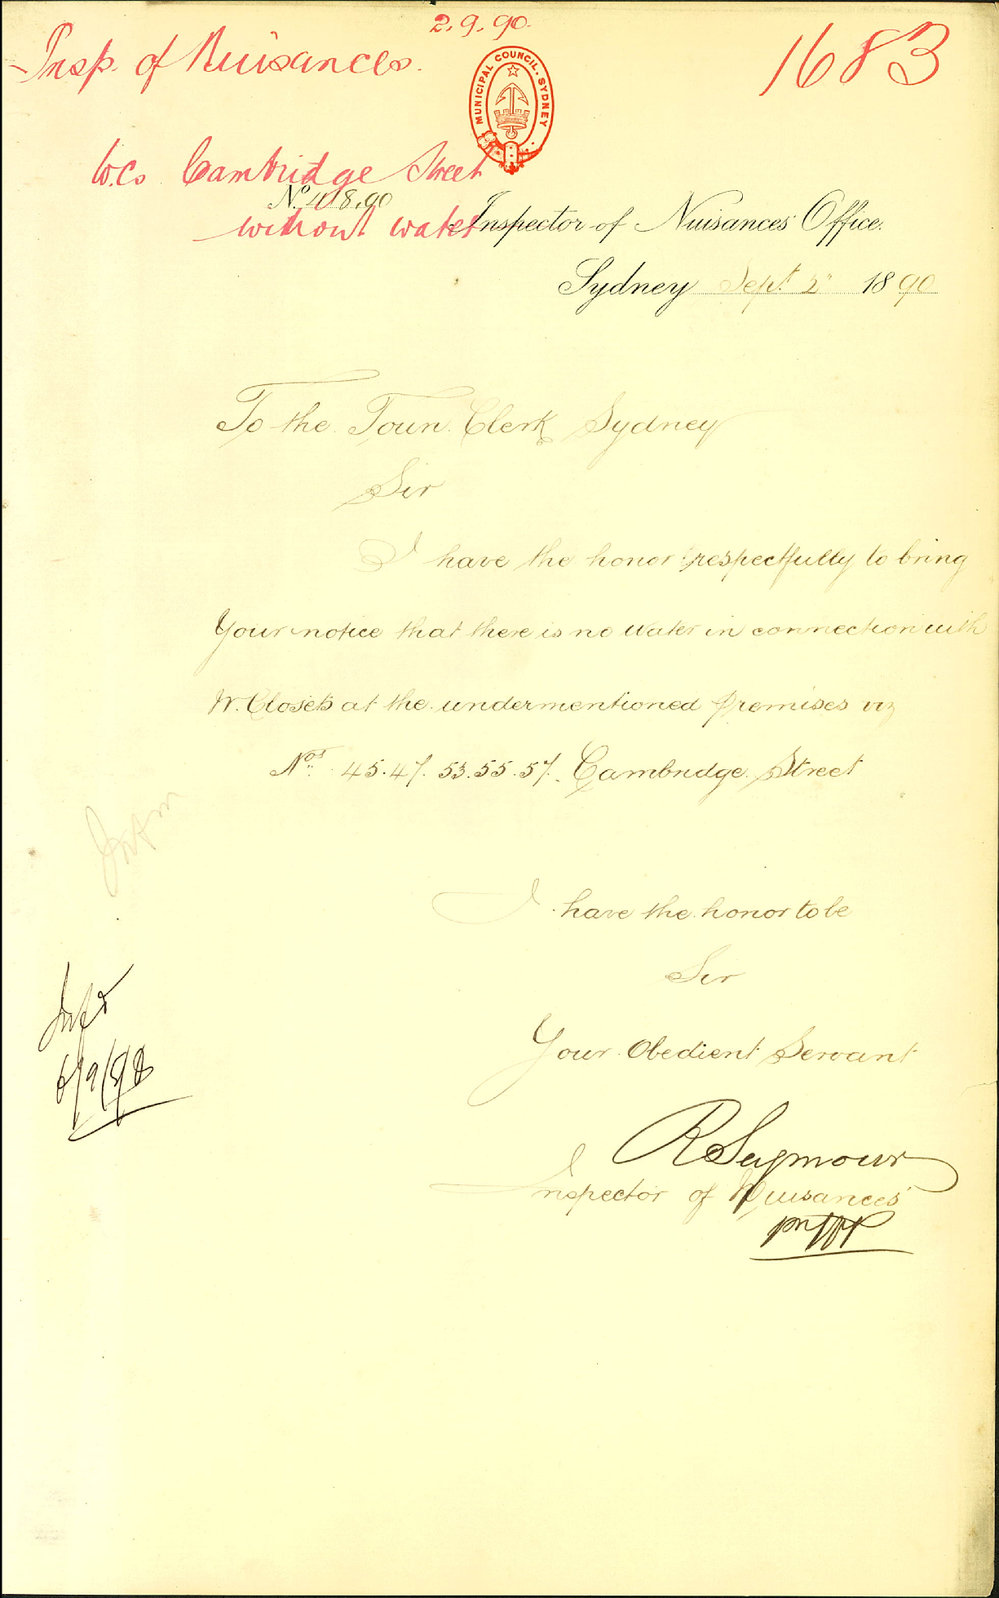 2.9.90.
Insp. of Nuisances.
1683
MUNICIPAL COUNCIL. SYDNEY
W.Cs Cambridge Street
without water
Inspector of Nuisances' Office.
Sydney Sept 2 1890
To the Town Clerk Sydney
Sir
I have the honor respectfully to bring
Your notice that there is no water in connection with
W. Closets at the undermentioned premises viz
Nos. 45. 47. 53. 55. 57. Cambridge Street
I have the honor to be
Sir
Your Obedient Servant
R Seymour
Inspector of Nuisances